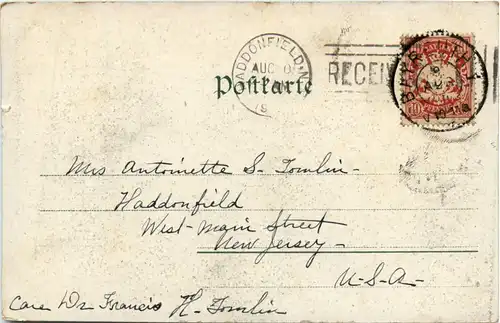 HADDONFIELD, N.
AUG
RECEIV
Postkarte
10
Mrs Antoinette S. Tomlin-
Haddonfield
West-Main Street
New Jersey-
U-S-A-
Care Dr Francis H. Tomlin